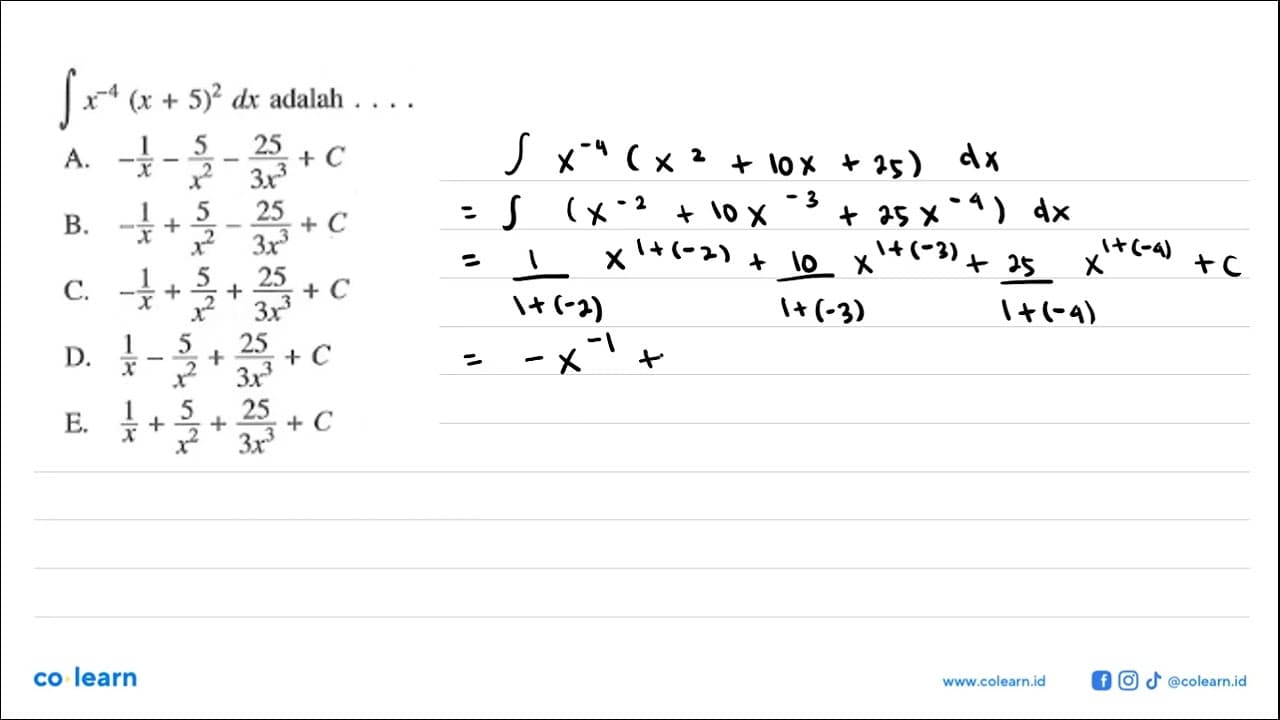 ∫ x⁻⁴ (x + 5)² dx adalah . . . .
A. -1/x - 5/x² - 25/3x³ + C
B. -1/x + 5/x² - 25/3x³ + C
C. -1/x + 5/x² + 25/3x³ + C
D. 1/x - 5/x² + 25/3x³ + C
E. 1/x + 5/x² + 25/3x³ + C
∫ x⁻⁴ (x² + 10x + 25) dx
= ∫ (x⁻² + 10x⁻³ + 25x⁻⁴) dx
= 1/(1+(-2)) x^(1+(-2)) + 10/(1+(-3)) x^(1+(-3)) + 25/(1+(-4)) x^(1+(-4)) + C
= - x⁻¹ +
co learn
www.colearn.id
@colearn.id